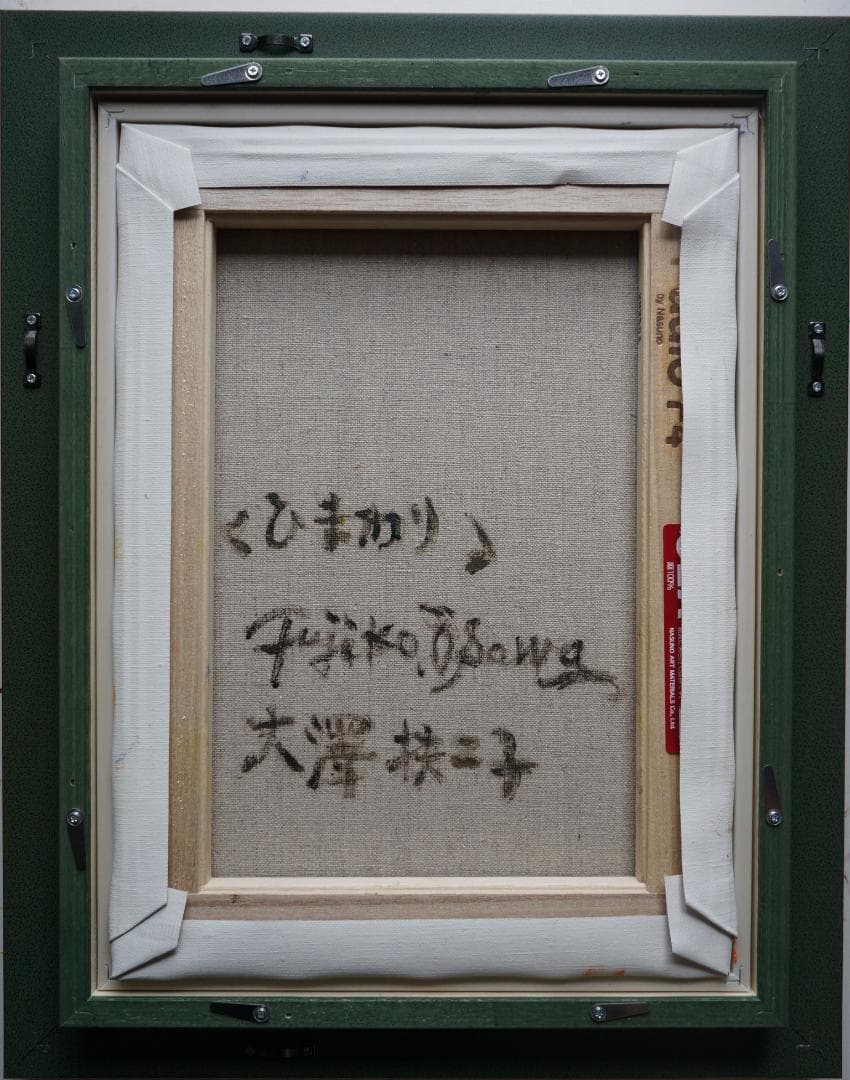 〈ひまわり〉
Fujiko.Ōsawa
大澤扶二子
by Nasuno
F4
麻100%
NASUNO ART MATERIALS Co., Ltd.